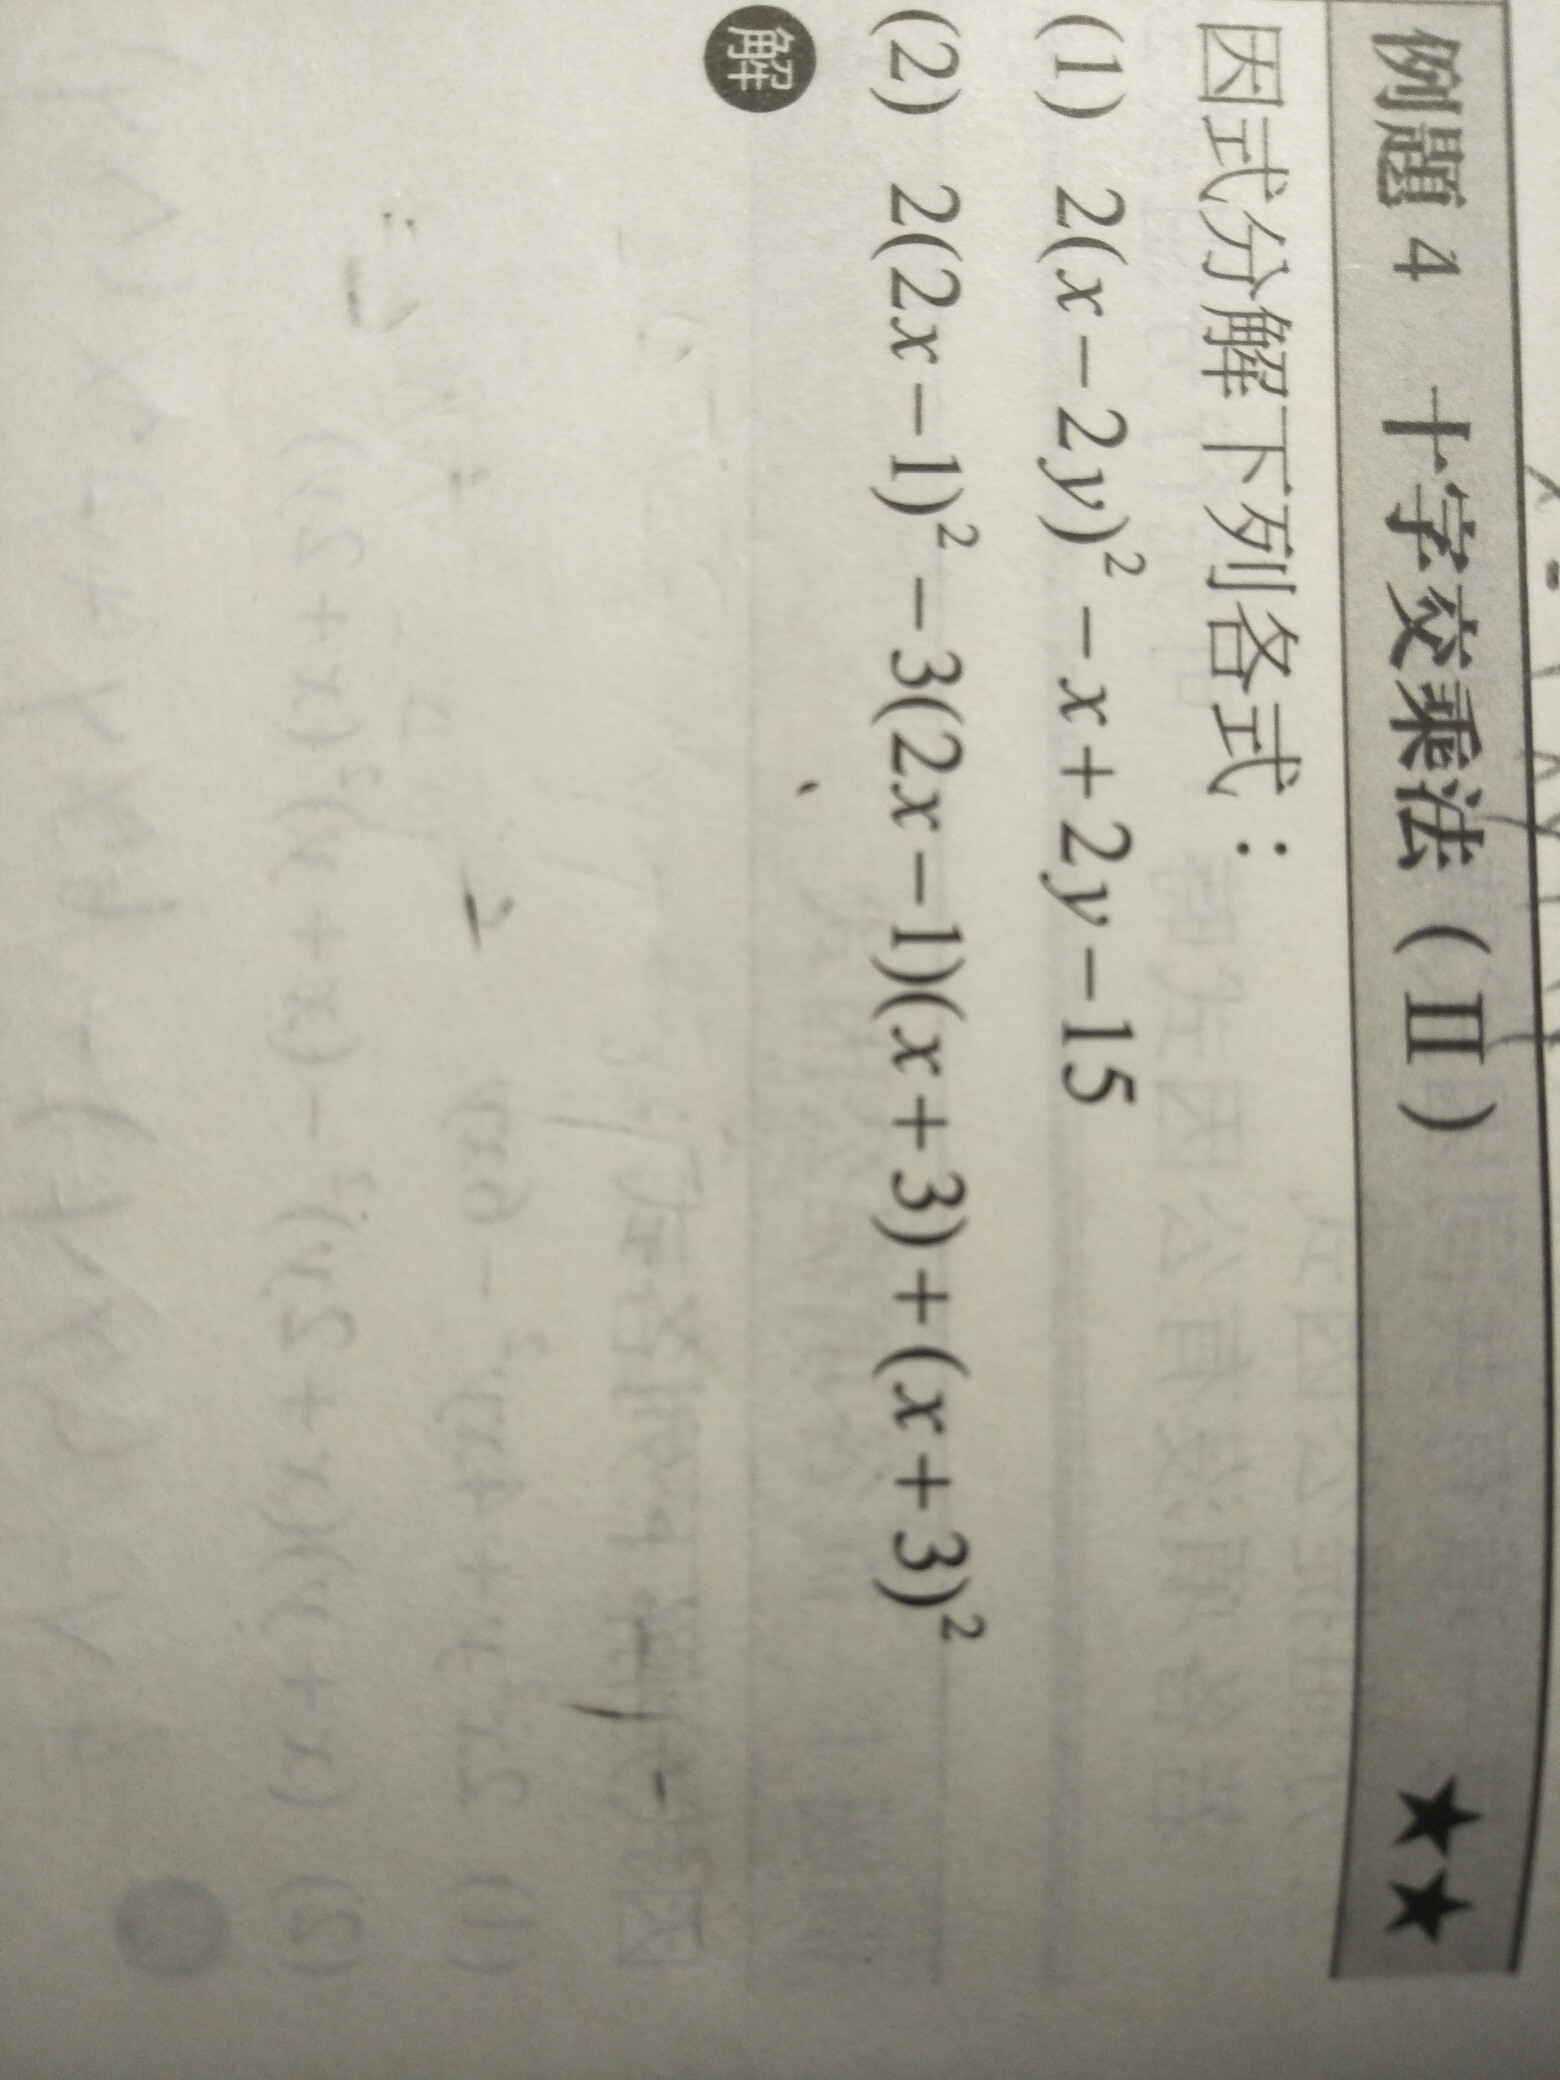 例題 4 十字交乘法（Ⅱ） ★★
因式分解下列各式：
(1) 2(x－2y)²－x＋2y－15
(2) 2(2x－1)²－3(2x－1)(x＋3)＋(x＋3)²
解